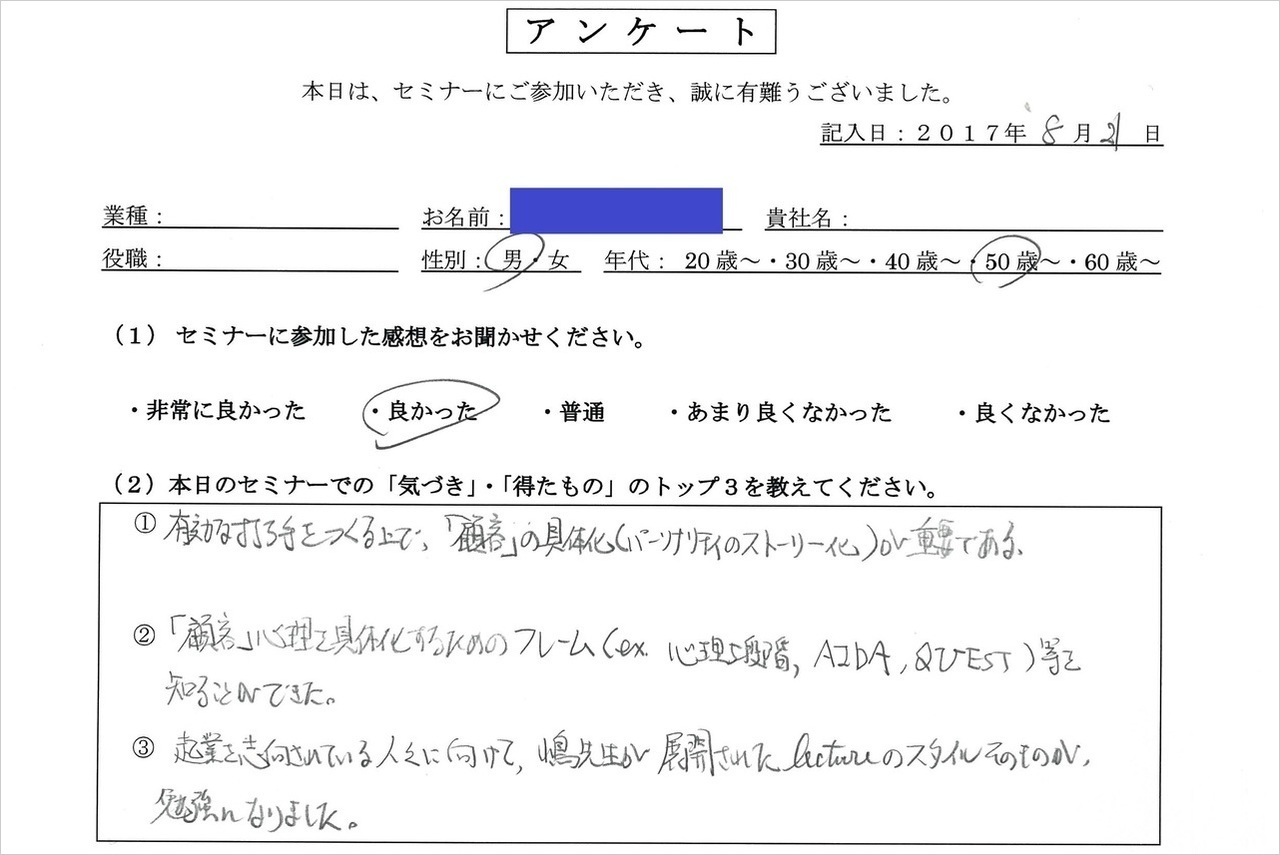 アンケート
本日は、セミナーにご参加いただき、誠に有難うございました。
記入日：２０１７年 8 月 21 日
業種： お名前： 貴社名：
役職： 性別： 男・女 年代： 20歳～・30歳～・40歳～・50歳～・60歳～
（1） セミナーに参加した感想をお聞かせください。
・非常に良かった ・良かった ・普通 ・あまり良くなかった ・良くなかった
（2）本日のセミナーでの「気づき」・「得たもの」のトップ３を教えてください。
① 有効な打ち手をつくる上で、「顧客」の具体化(パーソナリティのストーリー化)が重要である、
② 「顧客」心理を具体化するためのフレーム(ex. 心理段階, AIDA, QUEST)等を
知ることができた。
③ 起業を志向されている人々に向けて, 嶋先生が展開されたlectureのスタイルそのものが、
勉強になりました。